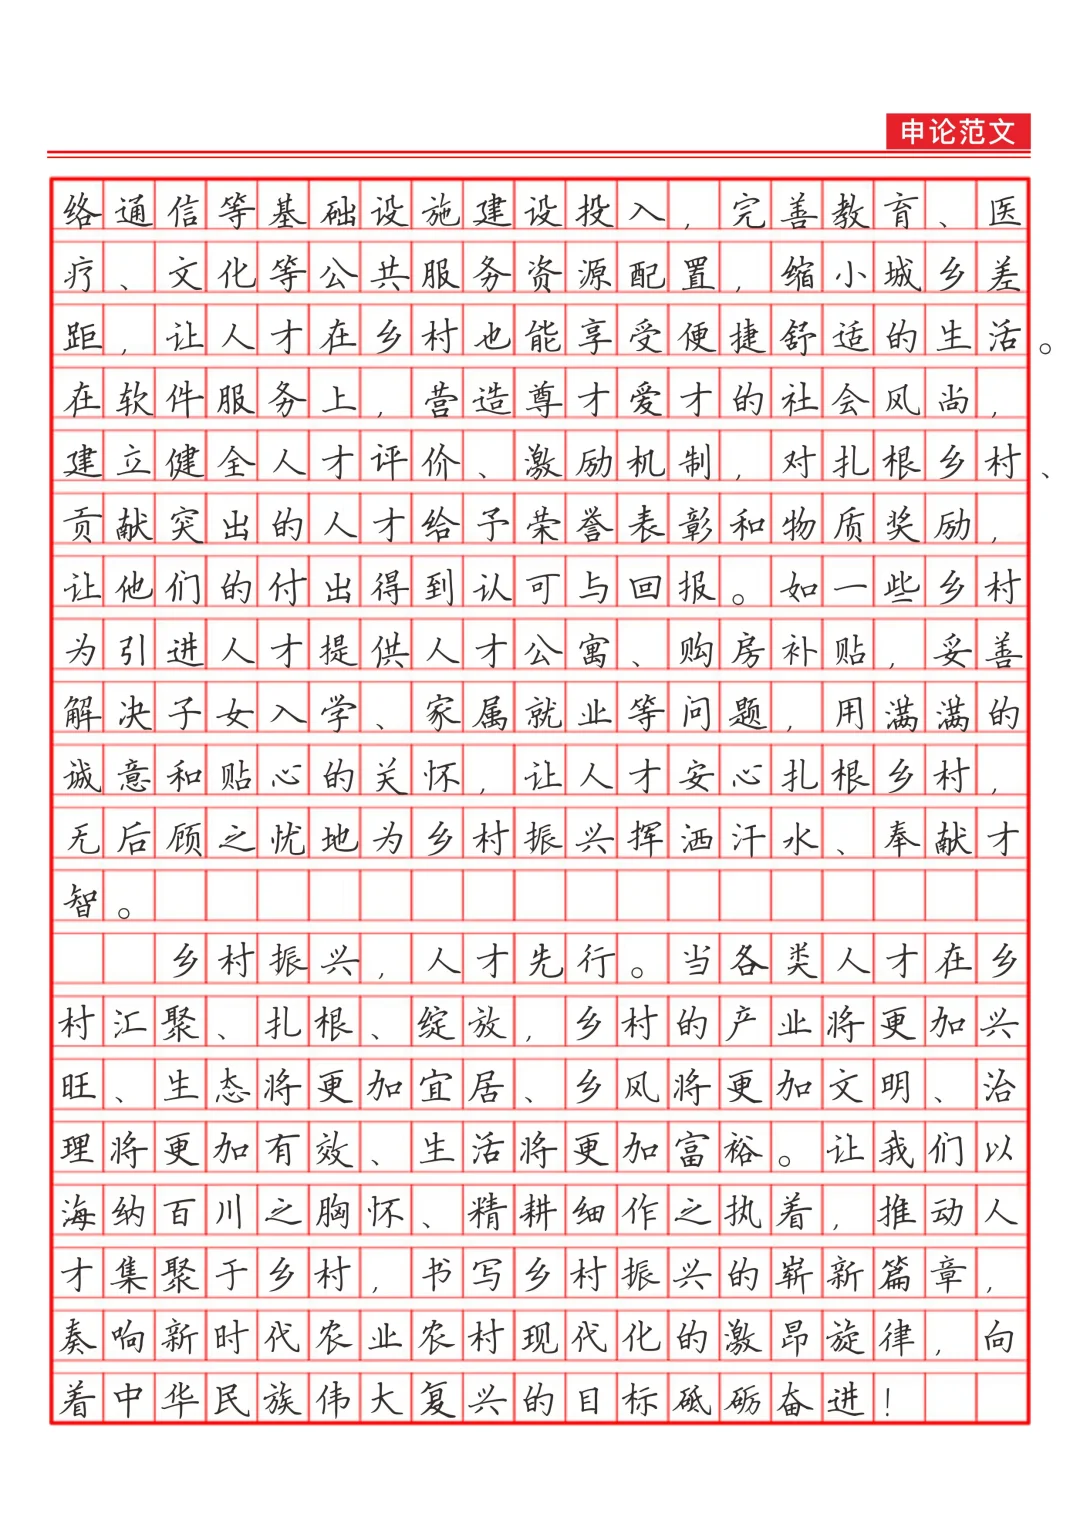 申论范文
络通信等基础设施建设投入，完善教育、医
疗、文化等公共服务资源配置，缩小城乡差
距，让人才在乡村也能享受便捷舒适的生活。
在软件服务上，营造尊才爱才的社会风尚，
建立健全人才评价、激励机制，对扎根乡村、
贡献突出的人才给予荣誉表彰和物质奖励，
让他们的付出得到认可与回报。如一些乡村
为引进人才提供人才公寓、购房补贴，妥善
解决子女入学、家属就业等问题，用满满的
诚意和贴心的关怀，让人才安心扎根乡村，
无后顾之忧地为乡村振兴挥洒汗水、奉献才
智。
乡村振兴，人才先行。当各类人才在乡
村汇聚、扎根、绽放，乡村的产业将更加兴
旺、生态将更加宜居、乡风将更加文明、治
理将更加有效、生活将更加富裕。让我们以
海纳百川之胸怀、精耕细作之执着，推动人
才集聚于乡村，书写乡村振兴的崭新篇章，
奏响新时代农业农村现代化的激昂旋律，向
着中华民族伟大复兴的目标砥砺奋进！